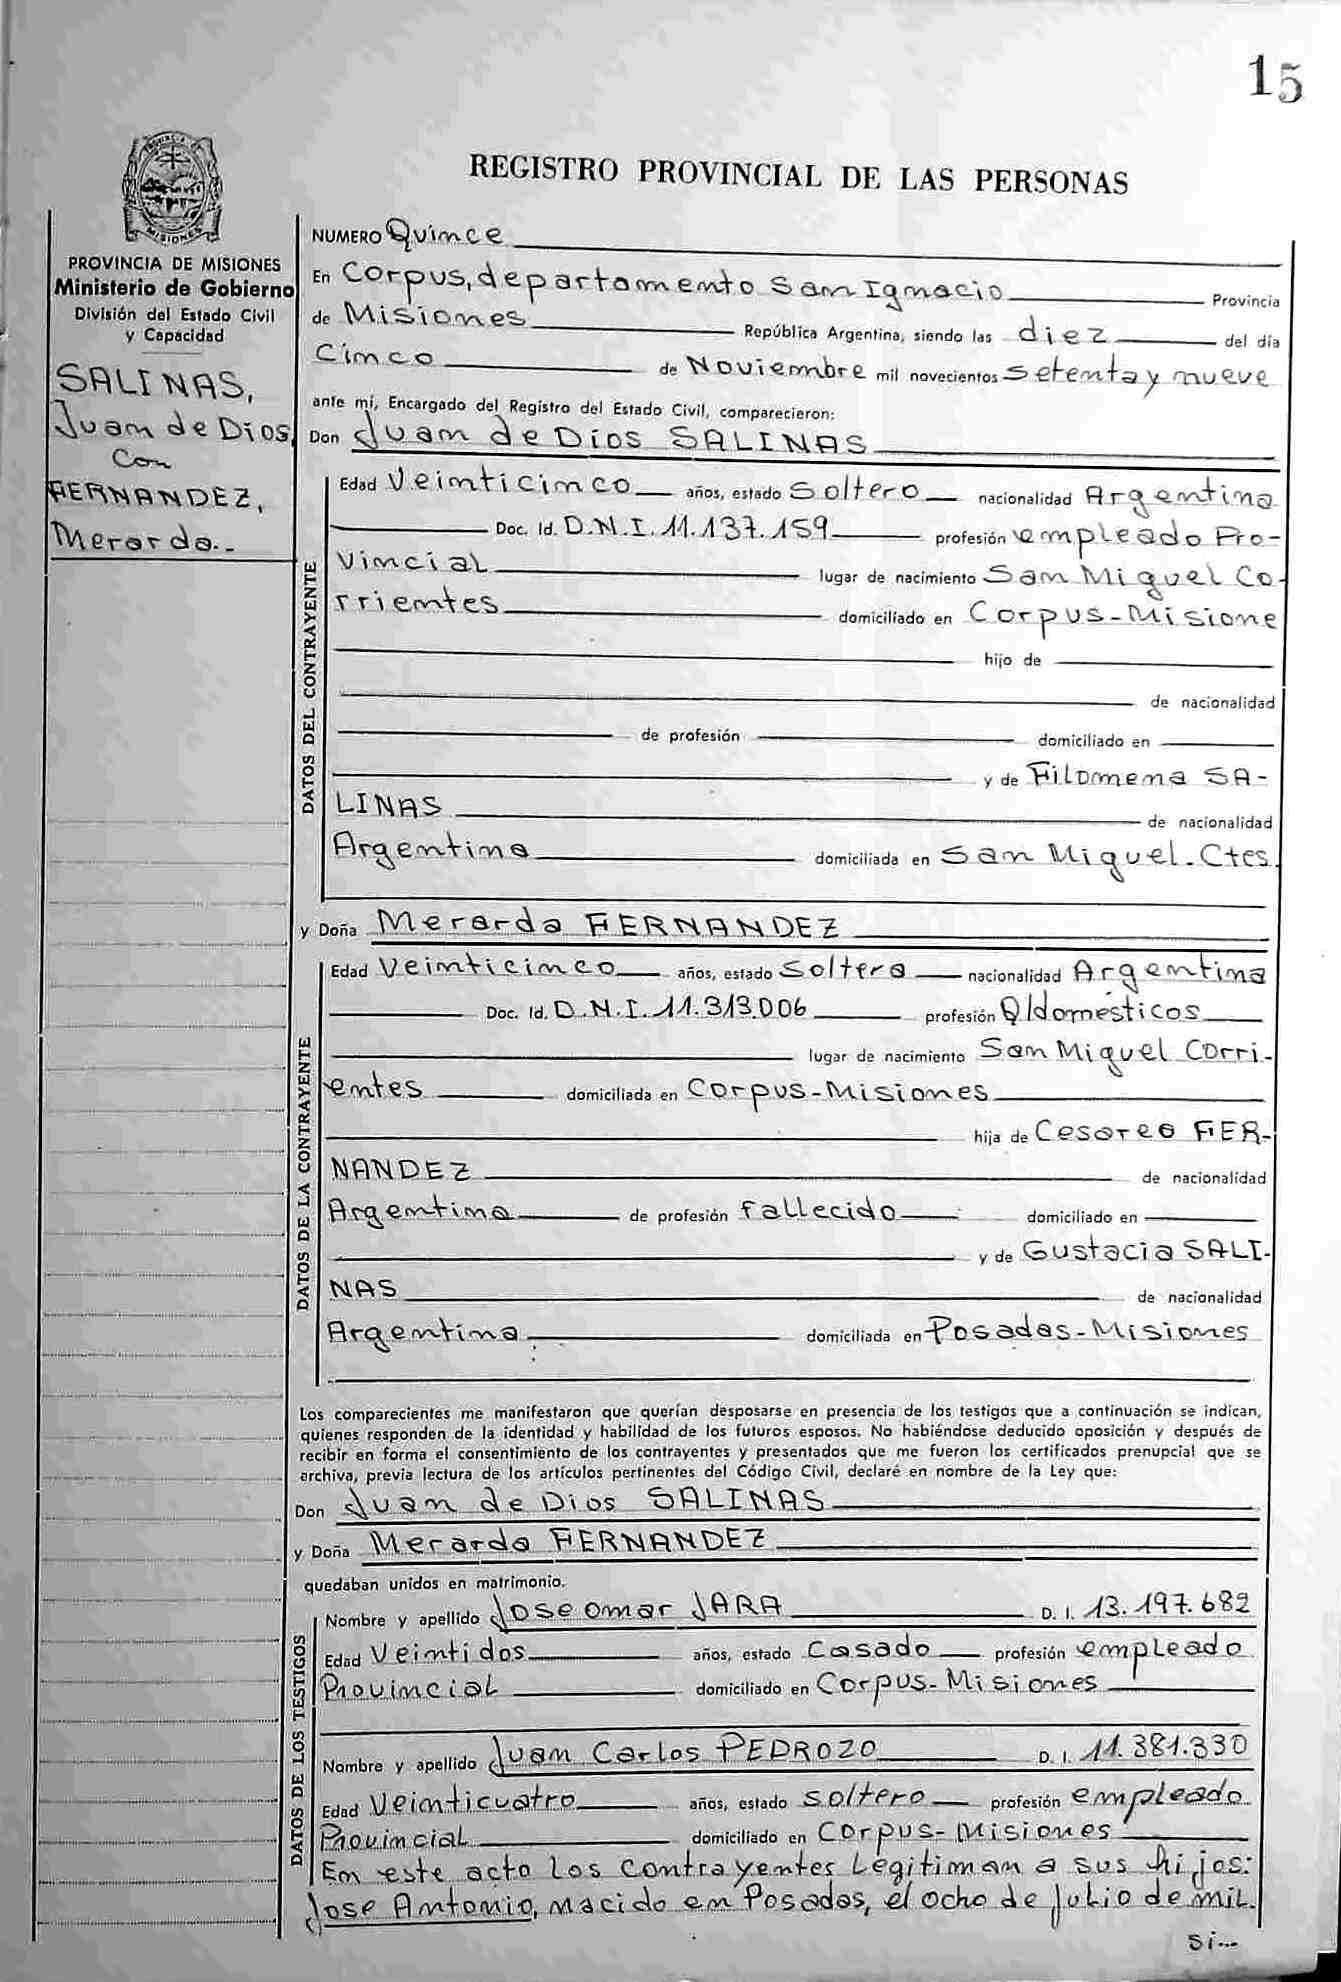 15
REGISTRO PROVINCIAL DE LAS PERSONAS
PROVINCIA DE MISIONES
Ministerio de Gobierno
División del Estado Civil
y Capacidad
SALINAS,
Juan de Dios
Con
FERNANDEZ,
Merarda.-
NUMERO Quince
En Corpus, departamento San Ignacio Provincia
de Misiones República Argentina, siendo las diez del día
Cinco de Noviembre mil novecientos setenta y nueve
ante mí, Encargado del Registro del Estado Civil, comparecieron:
Don Juan de Dios SALINAS
DATOS DEL CONTRAYENTE
Edad Veinticinco años, estado Soltero nacionalidad Argentina
Doc. Id. D.N.I. 11.137.159 profesión empleado Pro-
vincial lugar de nacimiento San Miguel Co-
rrientes domiciliado en Corpus-Misione
hijo de
de nacionalidad
de profesión domiciliado en
y de Filomena SA-
LINAS de nacionalidad
Argentina domiciliada en San Miguel. Ctes.
y Doña Merarda FERNANDEZ
DATOS DE LA CONTRAYENTE
Edad Veinticinco años, estado Soltera nacionalidad Argentina
Doc. Id. D.N.I. 11.313.006 profesión Q/domésticos
lugar de nacimiento San Miguel Corri-
entes domiciliada en Corpus-Misiones
hija de Cesareo FER-
NANDEZ de nacionalidad
Argentina de profesión fallecido domiciliado en
y de Gustacia SALI-
NAS de nacionalidad
Argentina domiciliada en Posadas-Misiones
Los comparecientes me manifestaron que querían desposarse en presencia de los testigos que a continuación se indican,
quienes responden de la identidad y habilidad de los futuros esposos. No habiéndose deducido oposición y después de
recibir en forma el consentimiento de los contrayentes y presentados que me fueron los certificados prenupcial que se
archiva, previa lectura de los artículos pertinentes del Código Civil, declaré en nombre de la Ley que:
Don Juan de Dios SALINAS
y Doña Merarda FERNANDEZ
quedaban unidos en matrimonio.
DATOS DE LOS TESTIGOS
Nombre y apellido Jose omar JARA D. I. 13.197.682
Edad Veintidos años, estado Casado profesión empleado
Provincial domiciliado en Corpus-Misiones
Nombre y apellido Juan Carlos PEDROZO D. I. 11.381.330
Edad Veinticuatro años, estado soltero profesión empleado
Provincial domiciliado en Corpus-Misiones
En este acto los contrayentes Legitiman a sus hijos:
Jose Antonio, nacido en Posadas, el ocho de Julio de mil.
si...